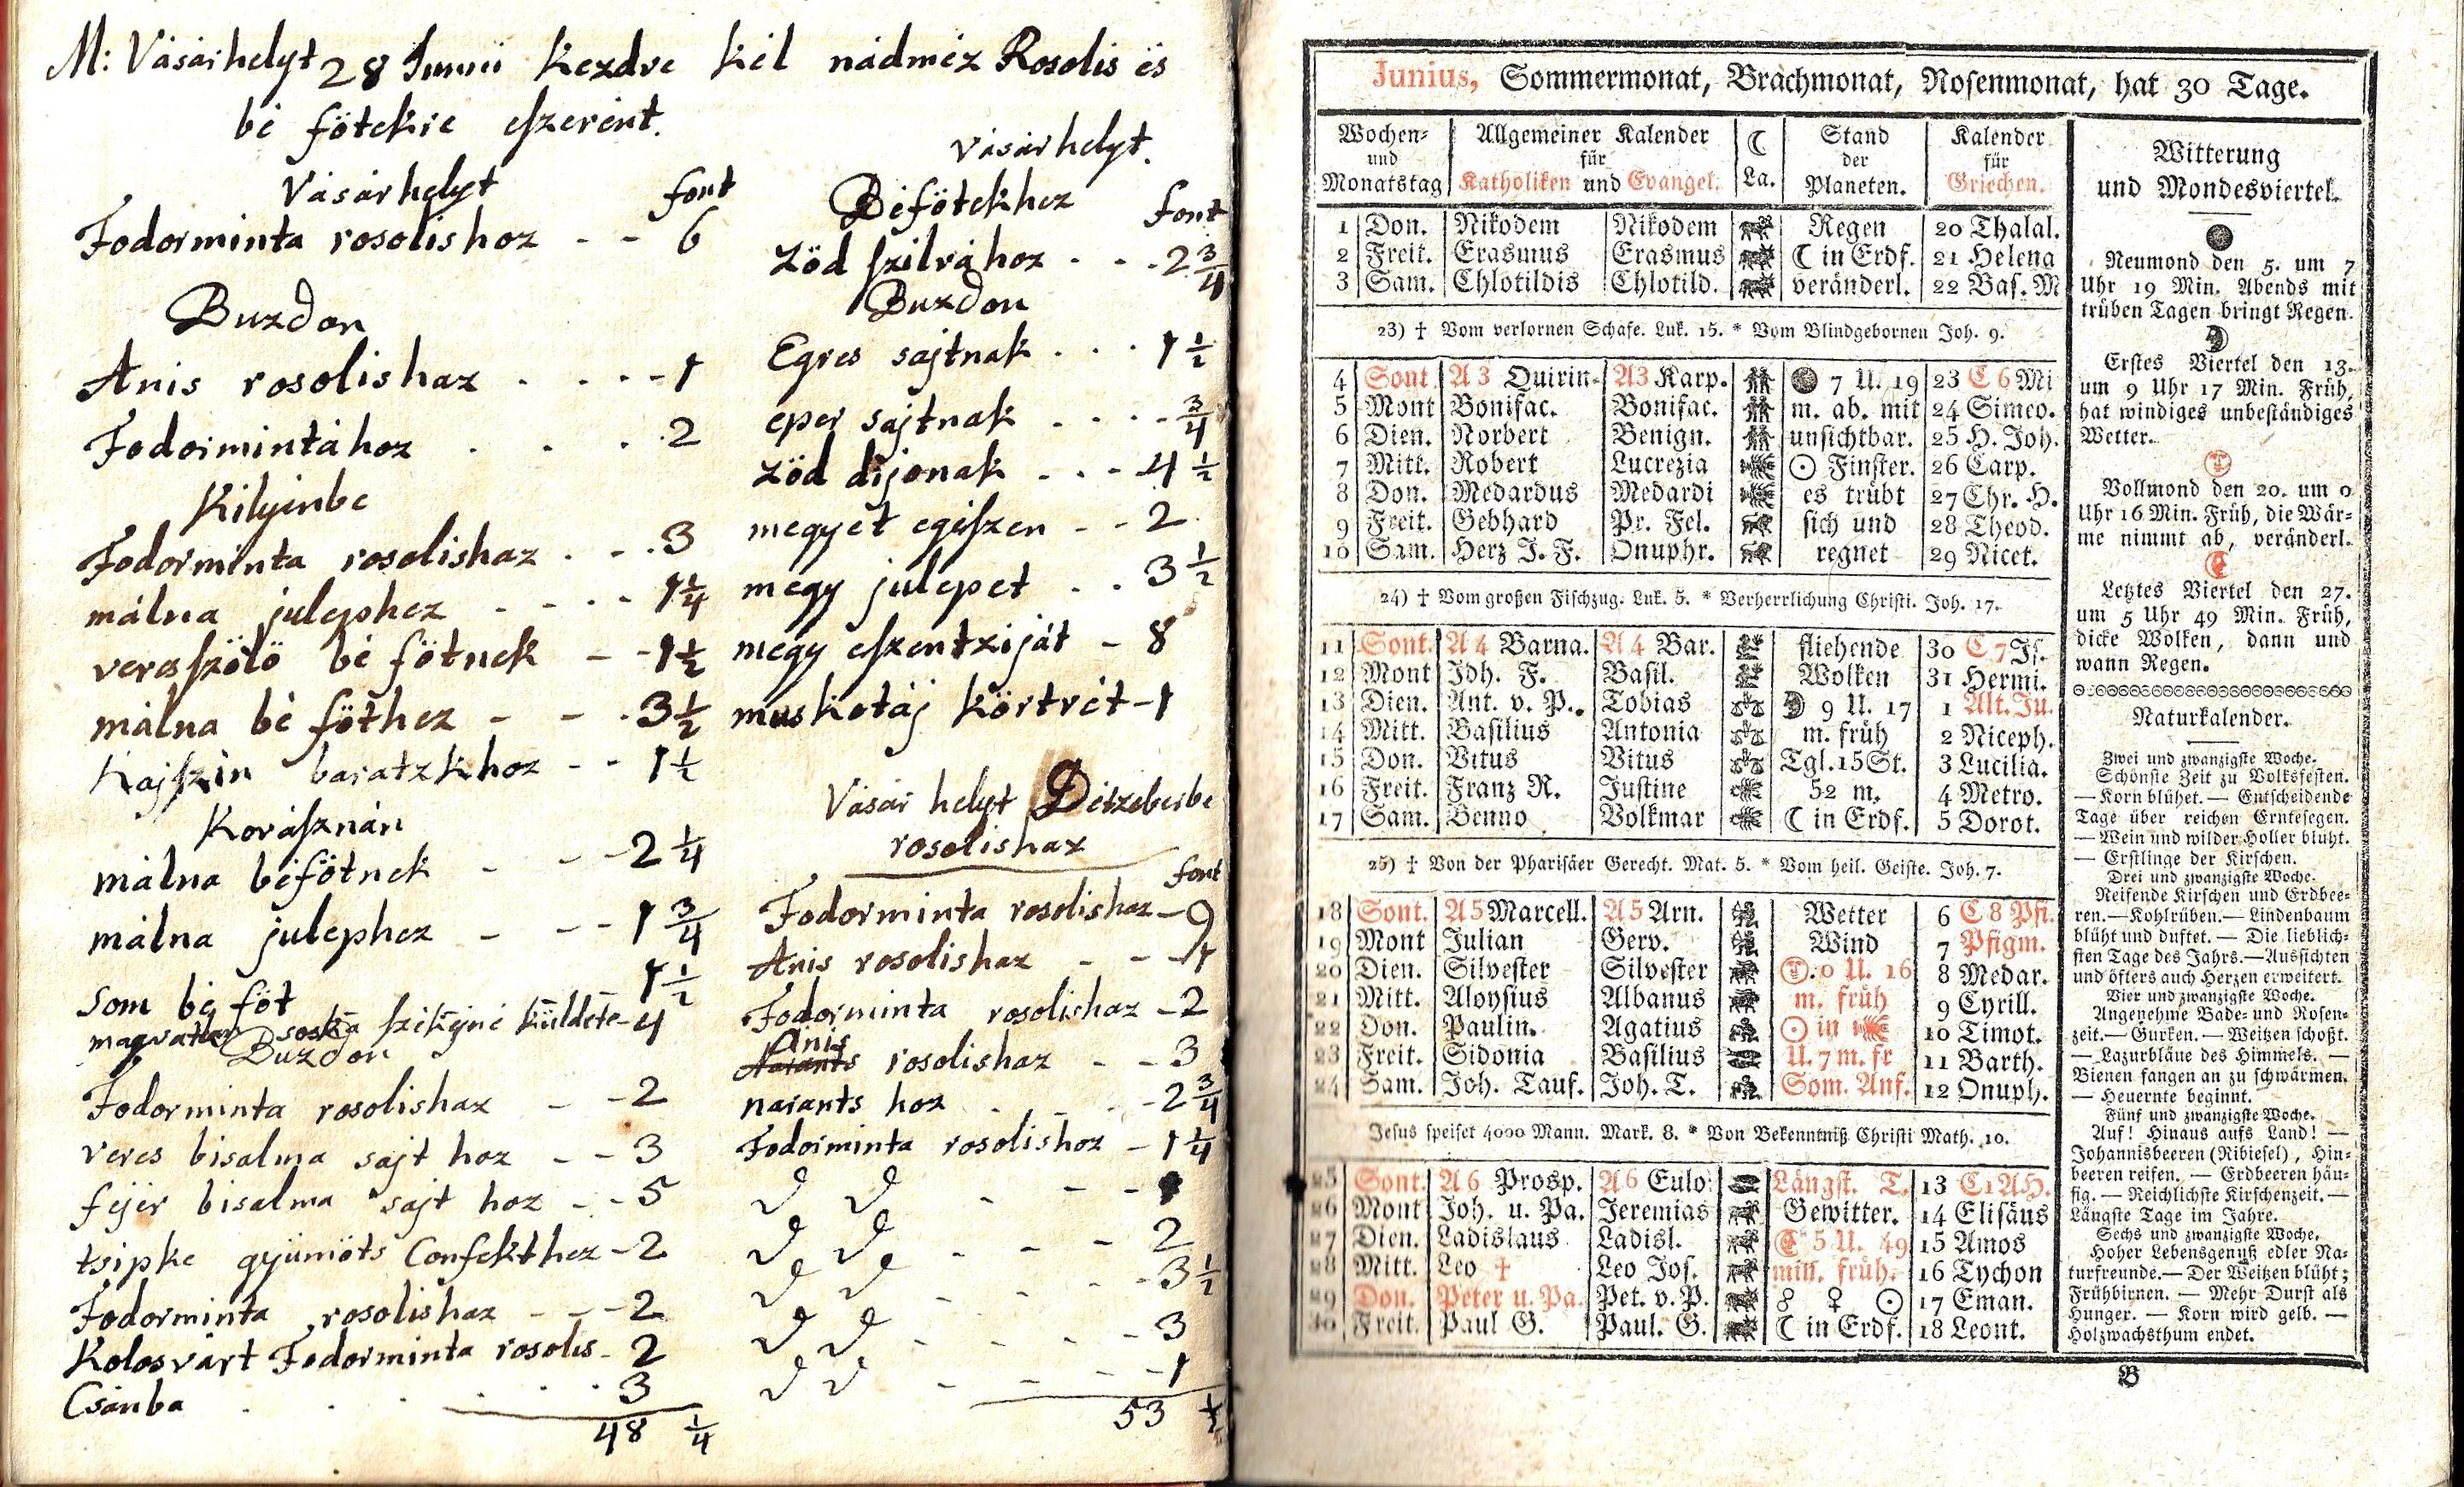 M: Vásárhelyt 28 Junii Kezdve kél nádméz Rosolis és
bé fötekre eſzerént.
Vásárhelyt
font
Fodorminta rosolishoz - - 6
Buzdon
Anis rosolishaz . . . - 1
Fodormintához . . . 2
Kilyénbe
Fodorminta rosolishaz . - . 3
málna julephez - - . - 1 1/4
veresſzölö bé fötnek - - 1 1/2
málna bé föthez - - . 3 1/2
Kajſzin baratzkhoz - - 1 1/2
Koráſznán
málna béfötnek - - - 2 1/4
málna julephez - - - 1 3/4
Som bé föt - 1 1/2
küldete - 4
Buzdon
Fodorminta rosolishaz - - 2
veres bisalma sajt hoz - - 3
fejér bisalma sajt hoz - - 5
tsipke gyümöts Confekthez - 2
Fodorminta rosolishaz - - - 2
Kolosvárt Fodorminta rosolis - 2
Csánba . . . . . 3
48 1/4
vásárhelyt.
Béfötekhez font
Zöd ſzilvához . . . 2 3/4
Buzdon
Egres sajtnak . . . 1 1/2
eper sajtnak . . . - 3/4
Zöd dijónak . . - 4 1/2
megyet egéſzen - - 2
megy julepet . . 3 1/2
megy eſzentziját - 8
muskotáj körtvét - 1
Vásár helyt Détzeberbe
rosolishaz
font
Fodorminta rosolishaz - 9
Anis rosolishaz - - - 1
Fodorminta rosolishaz - 2
Anis
Narants rosolishaz - - 3
narants hoz . - . - 2 3/4
Fodorminta rosolishoz - 1 1/4
D D - - - 1
D D - - - 2
D D - - - 3 1/2
D D - - - - 3
D D - - - - 1
53 1/2
Junius, Sommermonat, Brachmonat, Rosenmonat, hat 30 Tage.
Wochen- und Monatstag | Allgemeiner Kalender für Katholiken und Evangel. | ☾ La. | Stand der Planeten. | Kalender für Griechen.
1 Don. Nikodem Nikodem Regen 20 Thalal.
2 Freit. Erasmus Erasmus ☾ in Erdf. 21 Helena
3 Sam. Chlotildis Chlotild. veränderl. 22 Bas. M
23) † Vom verlornen Schafe. Luk. 15. * Vom Blindgebornen Joh. 9.
4 Sont. A 3 Quirin. A3 Karp. ● 7 U. 19 23 C 6 Mi
5 Mont Bonifac. Bonifac. m. ab. mit 24 Simeo.
6 Dien. Norbert Benign. unsichtbar. 25 H. Joh.
7 Mitt. Robert Lucrezia ☉ Finster. 26 Carp.
8 Don. Medardus Medardi es trübt 27 Chr. H.
9 Freit. Gebhard Pr. Fel. sich und 28 Theod.
10 Sam. Herz J. F. Onuphr. regnet 29 Nicet.
24) † Vom großen Fischzug. Luk. 5. * Verherrlichung Christi. Joh. 17.
11 Sont. A 4 Barna. A 4 Bar. fliehende 30 C 7 Is.
12 Mont Joh. F. Basil. Wolken 31 Hermi.
13 Dien. Ant. v. P. Tobias ☽ 9 U. 17 1 Alt. Ju.
14 Mitt. Basilius Antonia m. früh 2 Niceph.
15 Don. Vitus Vitus Tgl. 15 St. 3 Lucilia.
16 Freit. Franz R. Justine 52 m. 4 Metro.
17 Sam. Benno Volkmar ☾ in Erdf. 5 Dorot.
25) † Von der Pharisäer Gerecht. Mat. 5. * Vom heil. Geiste. Joh. 7.
18 Sont. A 5 Marcell. A 5 Arn. Wetter 6 C 8 Pfi.
19 Mont Julian Gerv. Wind 7 Pfigm.
20 Dien. Silvester Silvester 0 U. 16 8 Medar.
21 Mitt. Aloysius Albanus m. früh 9 Cyrill.
22 Don. Paulin. Agatius ☉ in 10 Timot.
23 Freit. Sidonia Basilius U. 7 m. fr 11 Barth.
24 Sam. Joh. Tauf. Joh. T. Som. Anf. 12 Onuph.
Jesus speiset 4000 Mann. Mark. 8. * Von Bekenntniß Christi Math. 10.
25 Sont. A 6 Prosp. A 6 Eulo. Längst. T. 13 C1 AH.
26 Mont Joh. u. Pa. Jeremias Gewitter. 14 Elisäus
27 Dien. Ladislaus Ladisl. ☾ 5 U. 49 15 Amos
28 Mitt. Leo † Leo Jos. min. früh. 16 Tychon
29 Don. Peter u. Pa. Pet. v. P. ☍ ♀ ☉ 17 Eman.
30 Freit. Paul G. Paul. G. ☾ in Erdf. 18 Leont.
Witterung
und Mondesviertel.
Neumond den 5. um 7
Uhr 19 Min. Abends mit
trüben Tagen bringt Regen.
Erstes Viertel den 13.
um 9 Uhr 17 Min. Früh,
hat windiges unbeständiges
Wetter.
Vollmond den 20. um 0
Uhr 16 Min. Früh, die Wär-
me nimmt ab, veränderl.
Letztes Viertel den 27.
um 5 Uhr 49 Min. Früh,
dicke Wolken, dann und
wann Regen.
Naturkalender.
Zwei und zwanzigste Woche.
Schönste Zeit zu Volksfesten.
— Korn blühet. — Entscheidende
Tage über reichen Erntesegen.
— Wein und wilder Holler blüht.
— Erstlinge der Kirschen.
Drei und zwanzigste Woche.
Reifende Kirschen und Erdbee-
ren. — Kohlrüben. — Lindenbaum
blüht und duftet. — Die lieblich-
sten Tage des Jahrs. — Aussichten
und öfters auch Herzen erweitert.
Vier und zwanzigste Woche.
Angenehme Bade- und Rosen-
zeit. — Gurken. — Weitzen schoßt.
— Lazurbläue des Himmels. —
Bienen fangen an zu schwärmen.
— Heuernte beginnt.
Fünf und zwanzigste Woche.
Auf! Hinaus aufs Land! —
Johannisbeeren (Ribiesel), Him-
beeren reifen. — Erdbeeren häu-
fig. — Reichlichste Kirschenzeit. —
Längste Tage im Jahre.
Sechs und zwanzigste Woche.
Hoher Lebensgenuß edler Na-
turfreunde. — Der Weitzen blüht;
Frühbirnen. — Mehr Durst als
Hunger. — Korn wird gelb. —
Holzwachsthum endet.
B